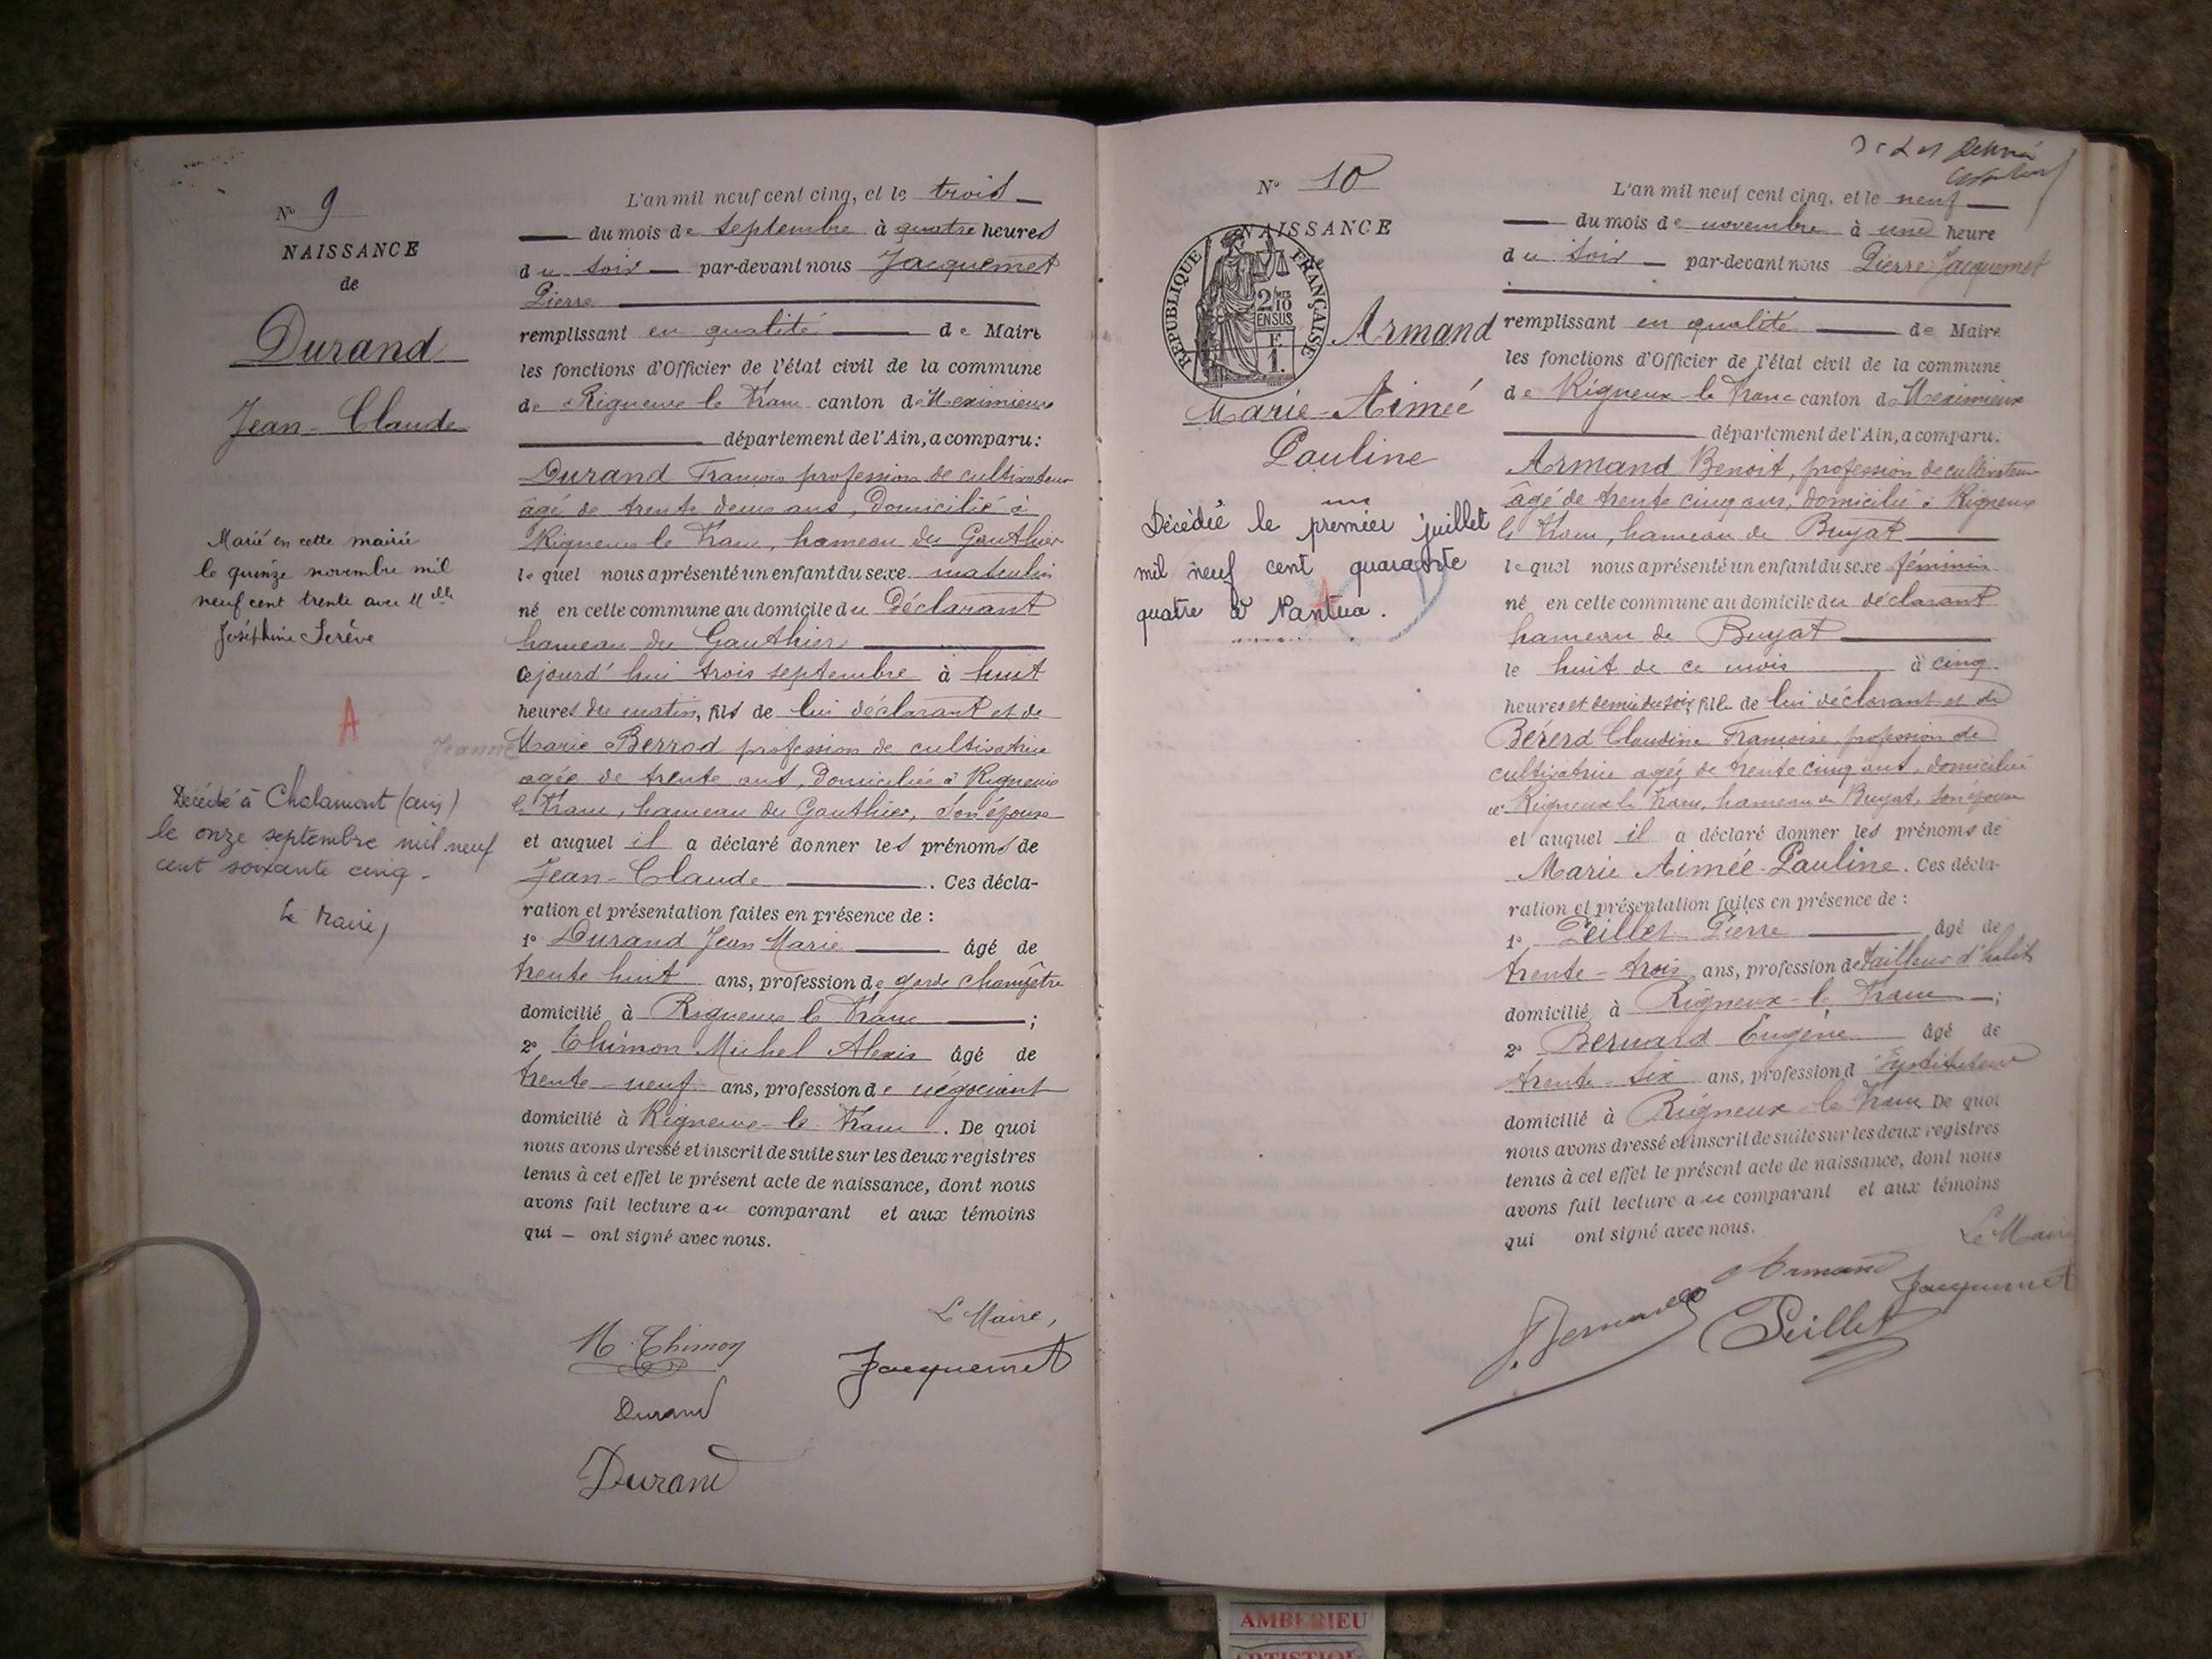 Nº 9
NAISSANCE
de
Durand
Jean-Claude
Marié en cette mairie
le quinze novembre mil
neuf cent trente avec Mlle
Joséphine
A
Décédé à Chalamont (ain)
le onze septembre mil neuf
cent soixante cinq.
Le Maire,
L'an mil neuf cent cinq, et le trois
du mois de septembre à quatre heures
du soir par-devant nous Jacquemet
Pierre
remplissant en qualité de Maire
les fonctions d'Officier de l'état civil de la commune
de Rigneux le Franc canton de Meximieux
département de l'Ain, a comparu:
Durand François profession de cultivateur
âgé de trente deux ans, Domicilié à
Rigneux le Franc, hameau du Gauthier
le quel nous a présenté un enfant du sexe masculin
né en cette commune au domicile du Déclarant
hameau du Gauthier
cejourd'hui trois septembre à huit
heures du matin, fils de lui déclarant et de
Jeanne Marie Berrod profession de cultivatrice
agée de trente ans, Domiciliée à Rigneux
le Franc, hameau du Gauthier, Son épouse
et auquel il a déclaré donner les prénoms de
Jean-Claude . Ces décla-
ration et présentation faites en présence de :
1º Durand Jean Marie âgé de
trente huit ans, profession de garde champêtre
domicilié à Rigneux le Franc ;
2º Thimon Michel Alexis âgé de
trente-neuf ans, profession de négociant
domicilié à Rigneux-le-Franc . De quoi
nous avons dressé et inscrit de suite sur les deux registres
tenus à cet effet le présent acte de naissance, dont nous
avons fait lecture au comparant et aux témoins
qui – ont signé avec nous.
Le Maire,
M. Thimon
Jacquemet
Durand
Durand
Nº 10
NAISSANCE
REPUBLIQUE FRANÇAISE
2/10 MES
EN SUS
F.
1.
Armand
Marie-Aimée
Pauline
Décédée le premier juillet
mil neuf cent quarante
quatre à Nantua.
A
L'an mil neuf cent cinq, et le neuf
du mois de novembre à une heure
du soir par-devant nous Pierre Jacquemet
remplissant en qualité de Maire
les fonctions d'Officier de l'état civil de la commune
de Rigneux-le-Franc canton de Meximieux
département de l'Ain, a comparu.
Armand Benoit, profession de cultivateur
âgé de trente cinq ans, domicilié à Rigneux
le Franc, hameau de Buyat
le quel nous a présenté un enfant du sexe féminin
né en cette commune au domicile du déclarant
hameau de Buyat
le huit de ce mois à cinq
heures et demie du soir, fille de lui déclarant et de
Bérerd Claudine Françoise, profession de
cultivatrice agée de trente cinq ans, domiciliée
à Rigneux le Franc, hameau de Buyat, son épouse
et auquel il a déclaré donner les prénoms de
Marie Aimée-Pauline. Ces décla-
ration et présentation faites en présence de :
1º Peillet Pierre âgé de
trente-trois ans, profession de tailleur d'habits
domicilié à Rigneux-le Franc ;
2º Bernard Eugène âgé de
trente-six ans, profession d'Instituteur
domicilié à Rigneux-le Franc De quoi
nous avons dressé et inscrit de suite sur les deux registres
tenus à cet effet le présent acte de naissance, dont nous
avons fait lecture au comparant et aux témoins
qui ont signé avec nous.
Le Maire
Armand
Jacquemet
Bernard
Peillet
AMBERIEU